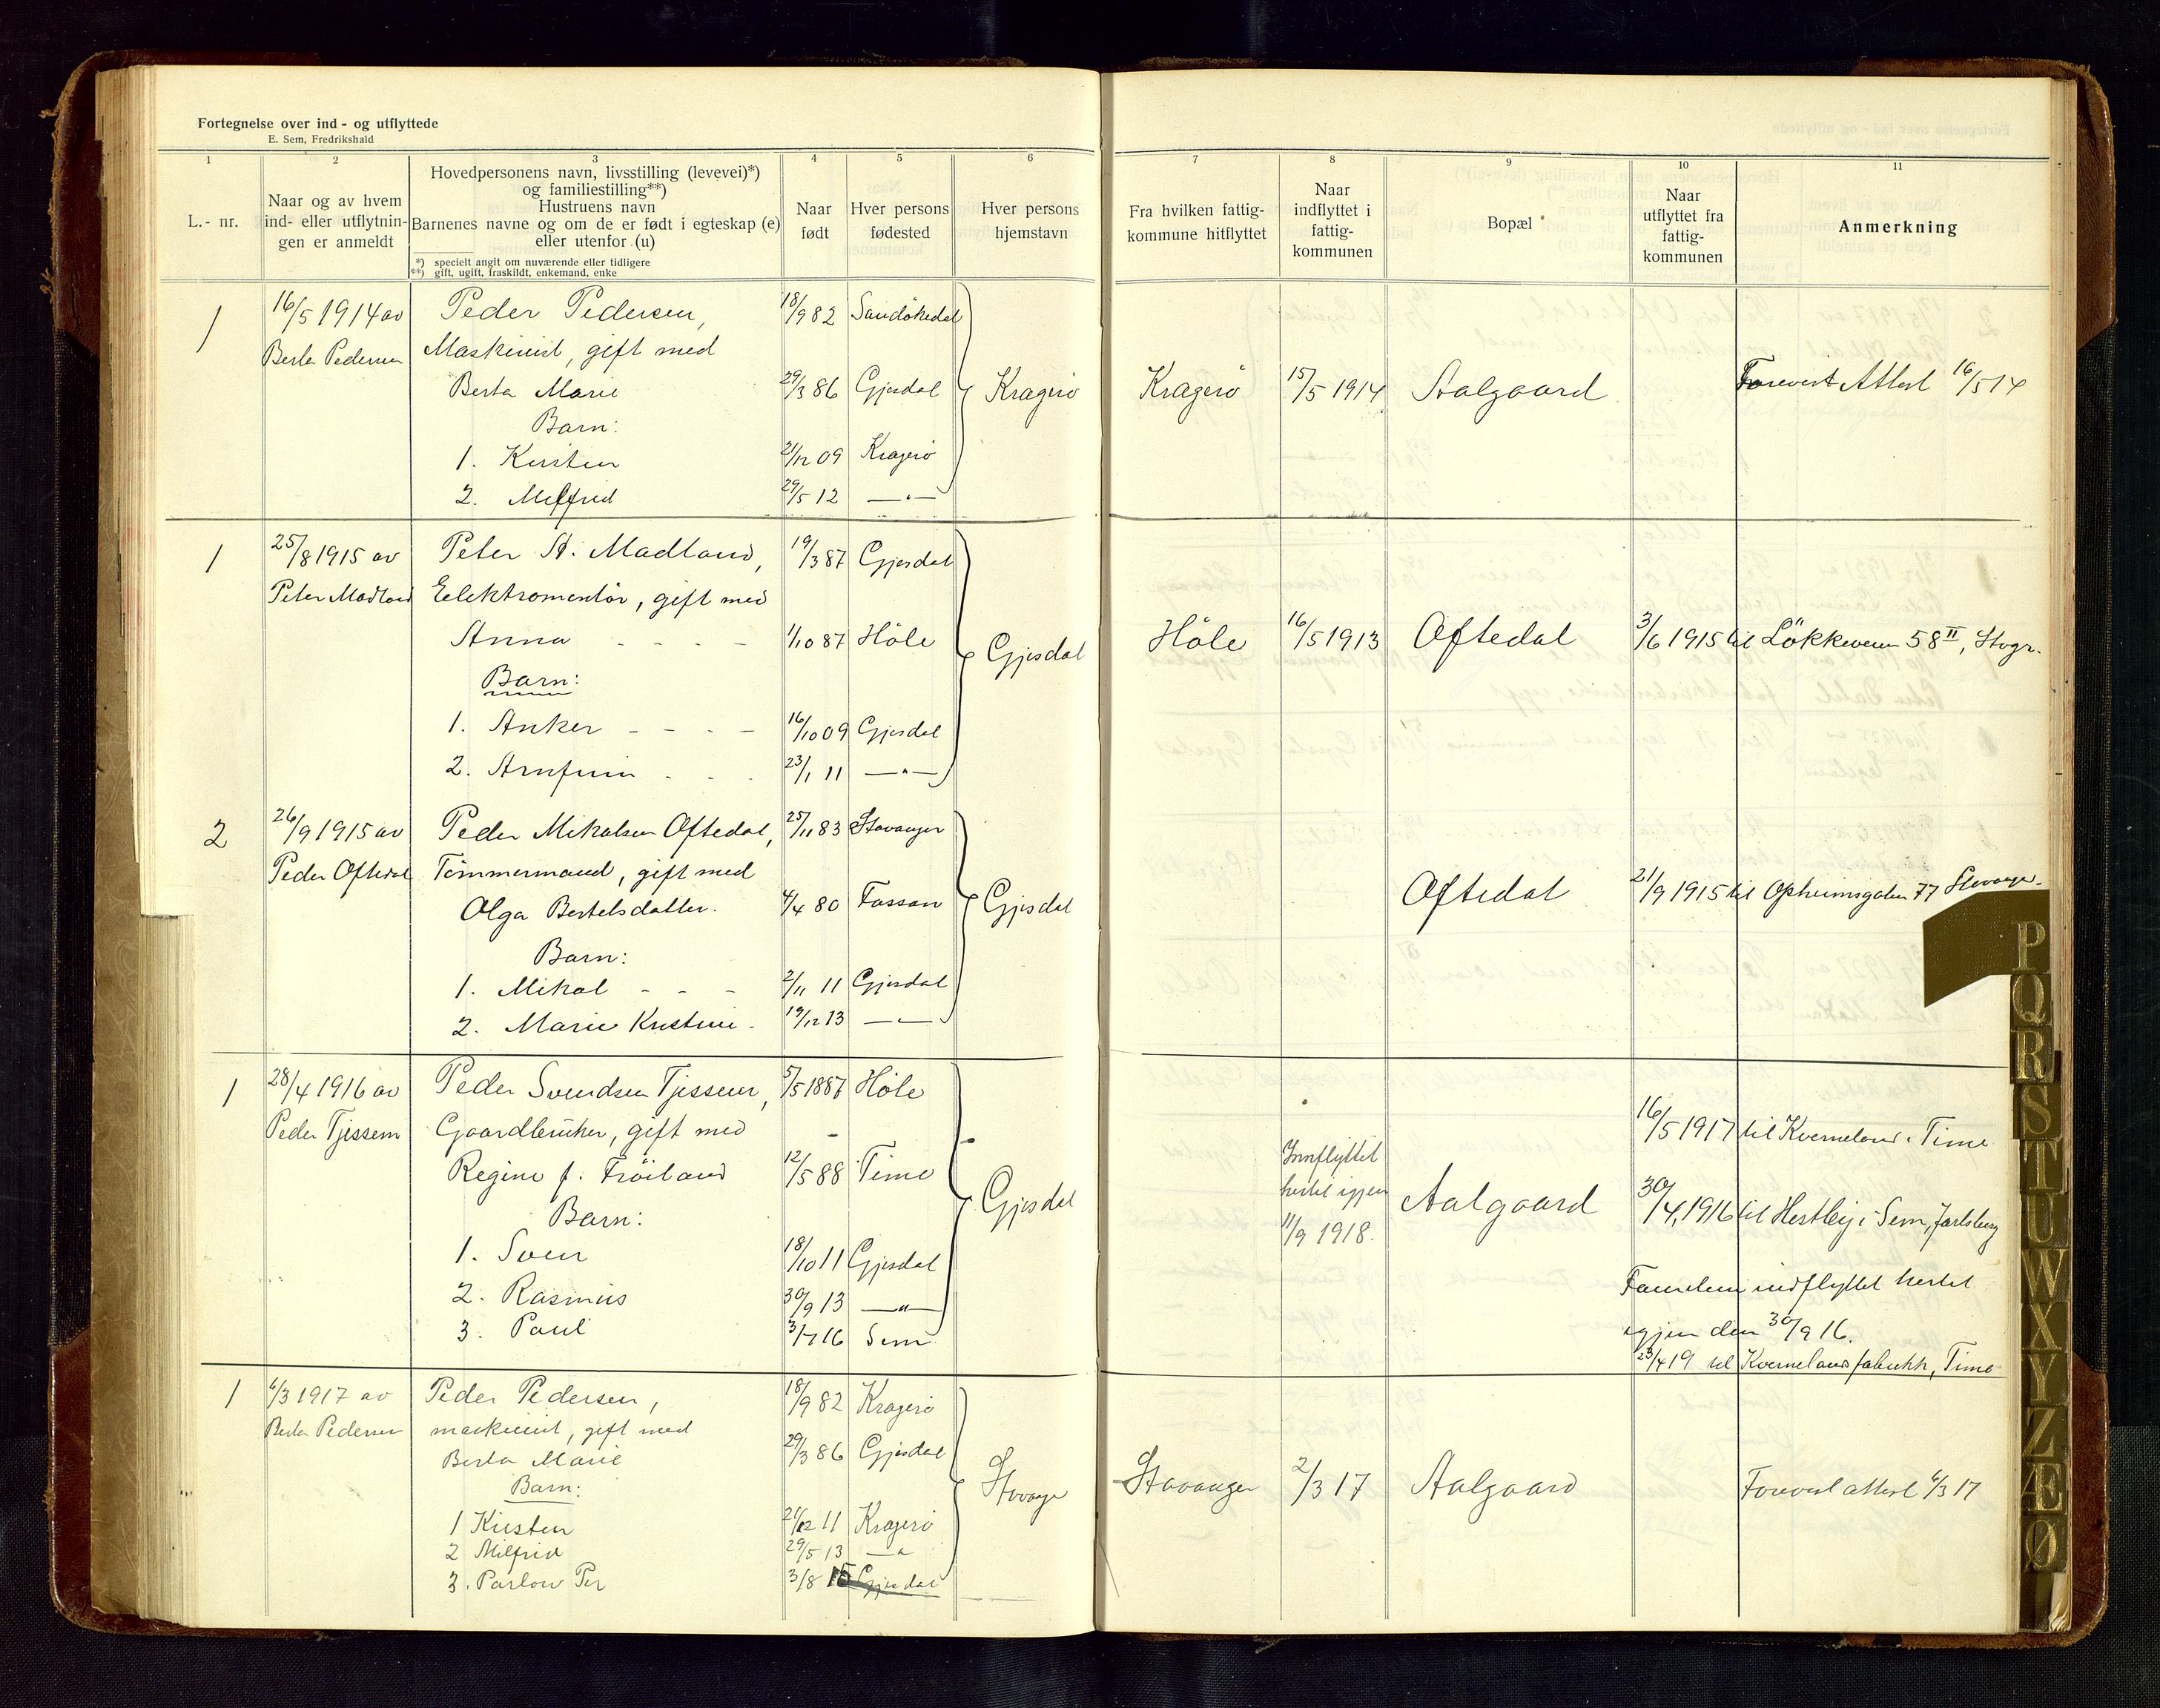 Fortegnelse over ind- og utflyttede
E. Sem, Fredrikshald
1 2 3 4 5 6 7 8 9 10 11
L.-nr.
Naar og av hvem
ind- eller utflytnin-
gen er anmeldt
Hovedpersonens navn, livsstilling (levevei)*)
og familiestilling**)
Hustruens navn
Barnenes navne og om de er født i egteskap (e)
eller utenfor (u)
*) specielt angit om nuværende eller tidligere
**) gift, ugift, fraskildt, enkemand, enke
Naar
født
Hver persons
fødested
Hver persons
hjemstavn
Fra hvilken fattig-
kommune hitflyttet
Naar
indflyttet i
fattig-
kommunen
Bopæl
Naar
utflyttet fra
fattig-
kommunen
Anmerkning
1 16/5 1914 av Peder Pedersen, 18/9 82 Sandökedal
Berta Pedersen Maskinist, gift med
Berta Marie 29/3 86 Gjesdal Kragerö Kragerö 15/5 1914 Aalgaard Forevist Attest 16/5 14
Barn:
1. Kirsten 21/12 09 Kragerö
2. Milfrid 29/5 12 —"—
1 25/8 1915 av Peter St. Madland, 19/3 87 Gjesdal
Peter Madland Eelektromontör, gift med
Anna - - - - 1/10 87 Höle Gjesdal Höle 16/5 1913 Oftedal 3/6 1915 til Lökkeveien 58 II, Stvgr.
Barn:
1. Anker - - - - 16/10 09 Gjesdal
2. Arnfinn - - - 23/1 11 —"—
2 26/9 1915 av Peder Mikalsen Oftedal, 25/11 83 Stavanger
Peder Oftedal Tömmermand, gift med
Olga Bertelsdatter. 4/4 80 Fossan Gjesdal Oftedal 21/9 1915 til Opheimsgaten 77 Stavanger.
Barn:
1. Mikal - - - 2/11 11 Gjesdal
2. Marie Kristine - 19/12 13 —"—
1 28/4 1916 av Peder Svendsen Tjessem, 5/5 1887 Höle
Peder Tjessem Gaardbruker, gift med 16/5 1917 til Kverneland i Time
Regine f. Fröiland 12/5 88 Time
Barn: Gjesdal Innflyttet
hertil igjen
11/9 1918. Aalgaard 30/4, 1916 til Hestley i Sem, Jarlsberg
1. Sven 18/10 11 Gjesdal
2. Rasmus 30/9 13 —"— Familien indflyttet hertil
3. Paul 3/7 16 Sem igjen den 30/9 16.
23/4 19 til Kvernelands fabrikk, Time
1 6/3 1917 av Peder Pedersen, 18/9 82 Kragerö
Berta Pedersen maskinist, gift med
Berta Marie 29/3 86 Gjesdal
Barn: Stavanger Stavanger 2/3 17 Aalgaard Forevist attest 6/3 17
1 Kirsten 21/12 11 Kragerö
2 Milfrid 29/5 13 —"
3. Parlow Per 3/8 15 Gjesdal
P
Q
R
S
T
U
W
X
Y
Z
Æ
Ø